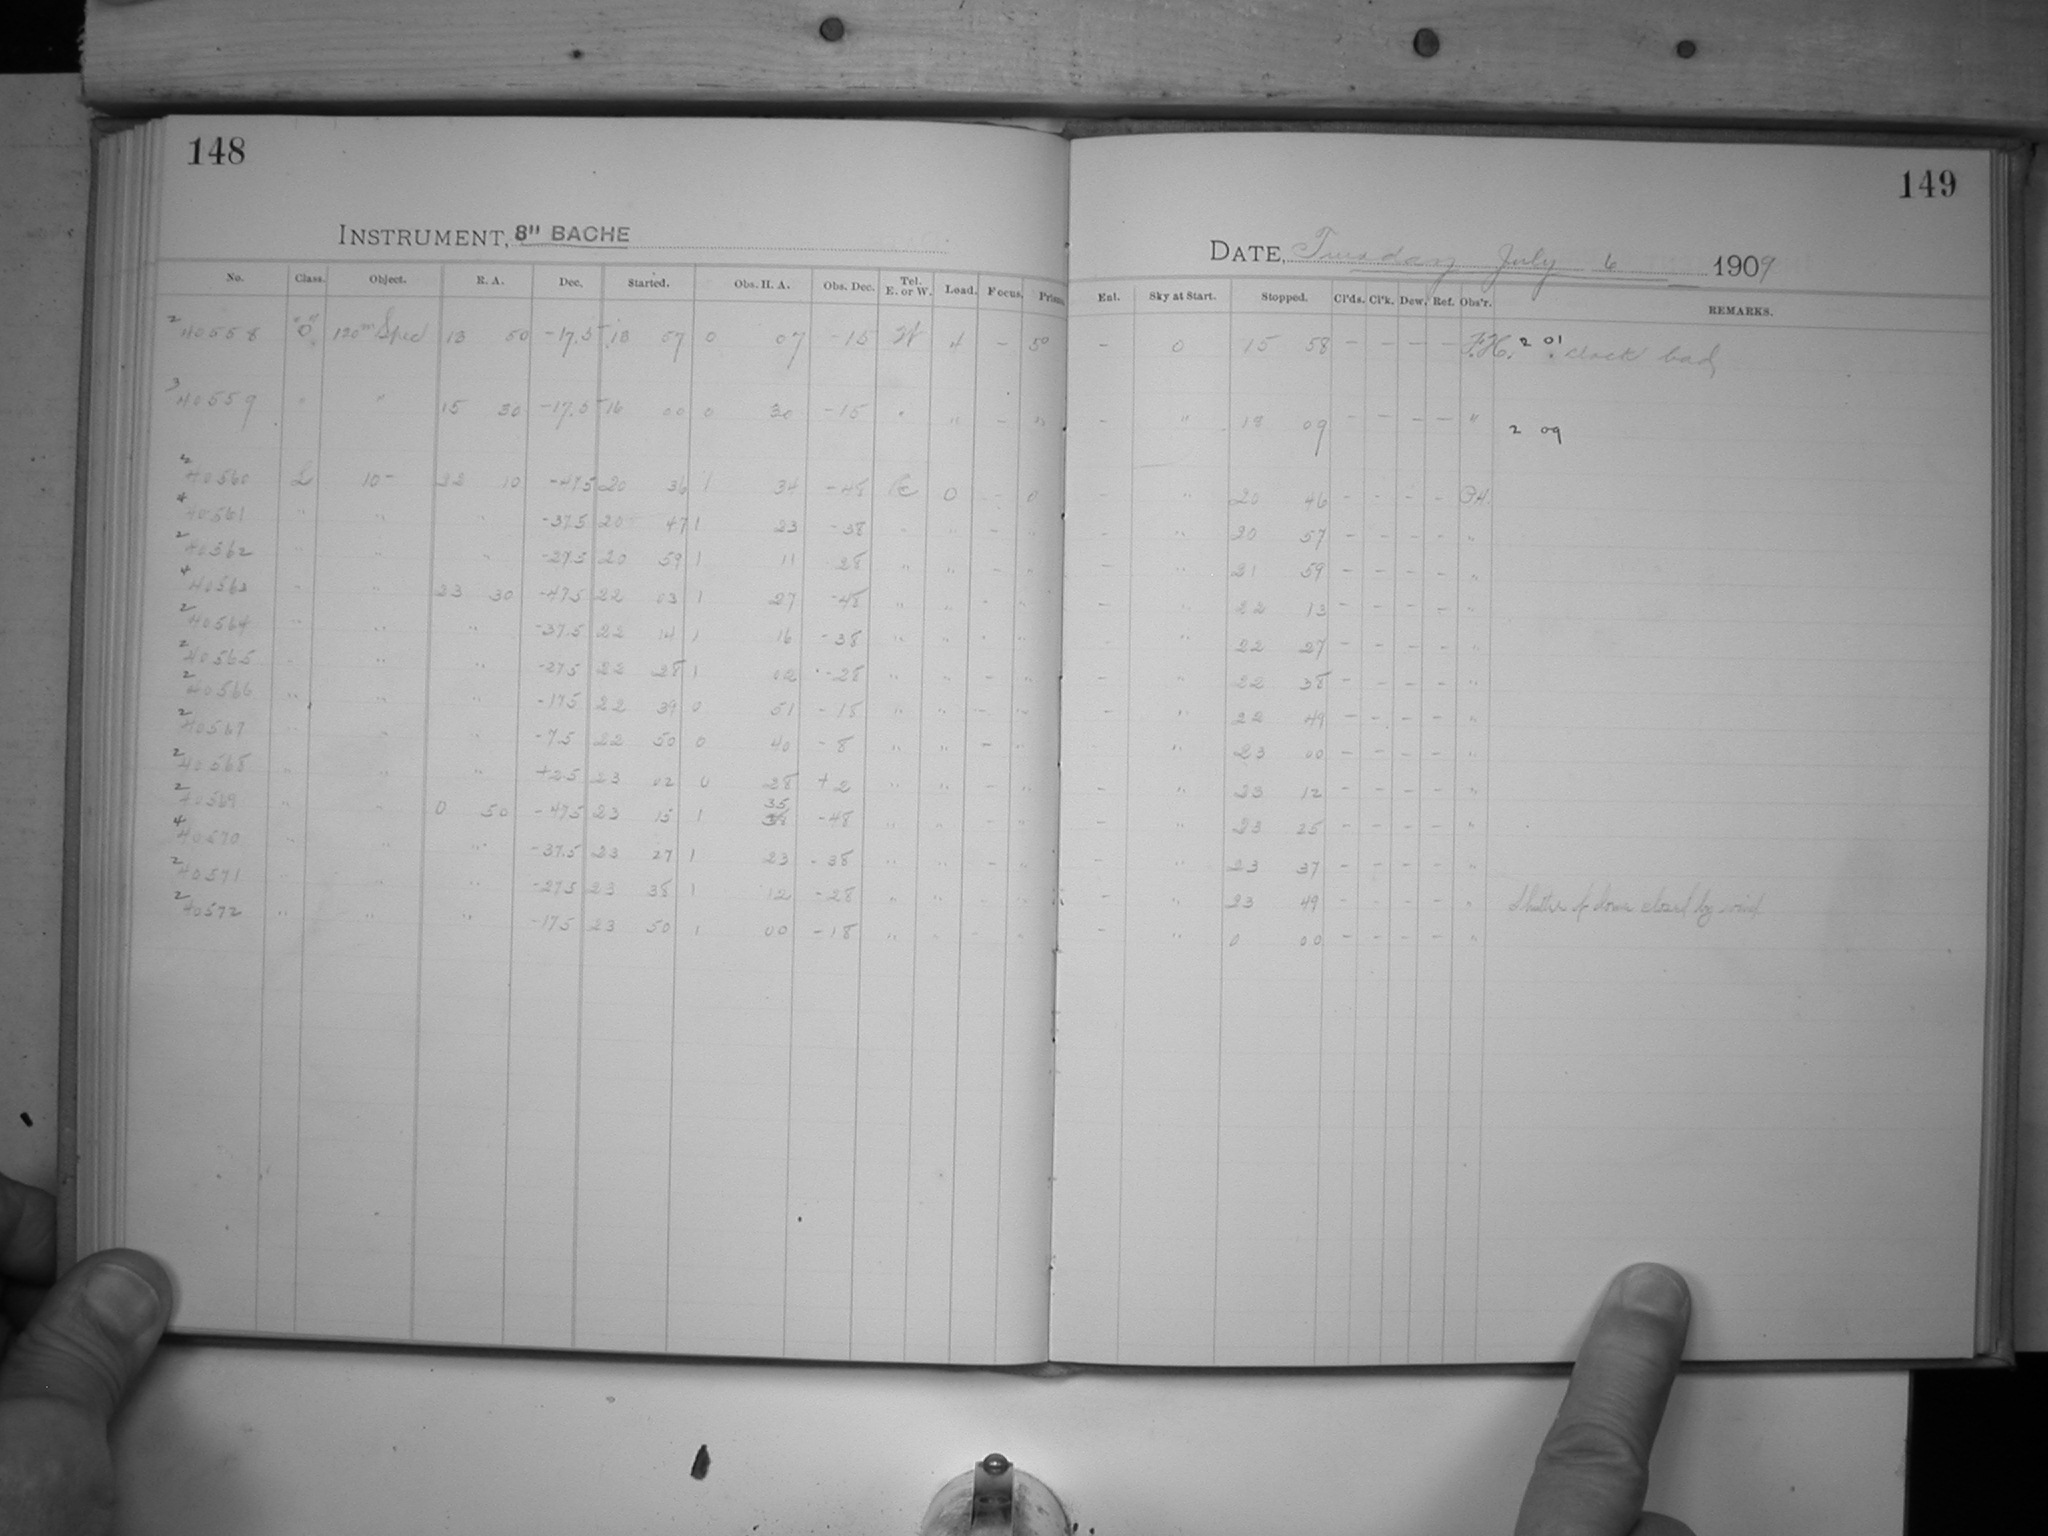 148
INSTRUMENT, 8" BACHE
No. Class. Object. R. A. Dec. Started. Obs. H. A. Obs. Dec. Tel. E. or W. Load. Focus. Prism.
2 40558 "O" 120m Spec 13 50 -17.5 13 57 0 07 -15 W 4 - 5°
3 40559 " " 15 30 -17.5 16 00 0 30 -15 " " - "
2 40560 L 10- 22 10 -47.5 20 36 1 34 -48 E 0 - 0
4 40561 " " " -37.5 20 47 1 23 -38 - " - "
2 40562 " " " -27.5 20 59 1 11 28 " " - "
4 40563 " " 23 30 -47.5 22 03 1 27 -48 " " - "
2 40564 " " " -37.5 22 14 1 16 -38 " " - "
2 40565 " " " -27.5 22 28 1 02 -28 " " - "
2 40566 " " " -17.5 22 39 0 51 -18 " " - "
2 40567 " " " -7.5 22 50 0 40 -8 " " - "
2 40568 " " " +2.5 23 02 0 28 +2 " " - "
2 40569 " " 0 50 -47.5 23 15 1 35 -48 " " - "
4 40570 " " " -37.5 23 27 1 23 -38 " " - "
2 40571 " " " -27.5 23 38 1 12 -28 " " - "
2 40572 " " " -17.5 23 50 1 00 -18 " - - "
149
DATE, Tuesday July 6 1909
Enl. Sky at Start. Stopped. Cl'ds. Cl'k. Dew. Ref. Obs'r. REMARKS.
- 0 15 58 - - - - F.H. 2 01 . clock bad
- " 18 09 - - - - " 2 09
- " 20 46 - - - -
- " 20 57 - - - - "
- " 21 59 - - - - "
- " 22 13 - - - - "
- " 22 27 - - - - "
- " 22 38 - - - - "
- " 22 49 - - - - "
" 23 00 - - - - "
- " 23 12 - - - - "
- " 23 25 - - - - "
- " 23 37 - - - - "
- " 23 49 - - - - " Shutter of dome closed by wind
- " 0 00 - - - - "